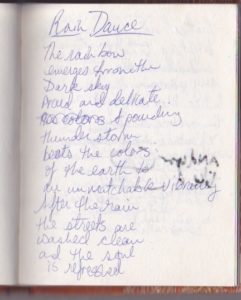 Rain Dance
The rainbow
emerges from the
Dark sky
Proud and delicate.
A pounding
thunder storm
beats the colors
of the earth to
an unmatchable vibrancy
After the rain
the streets are
washed clean
and the soul
is refreshed